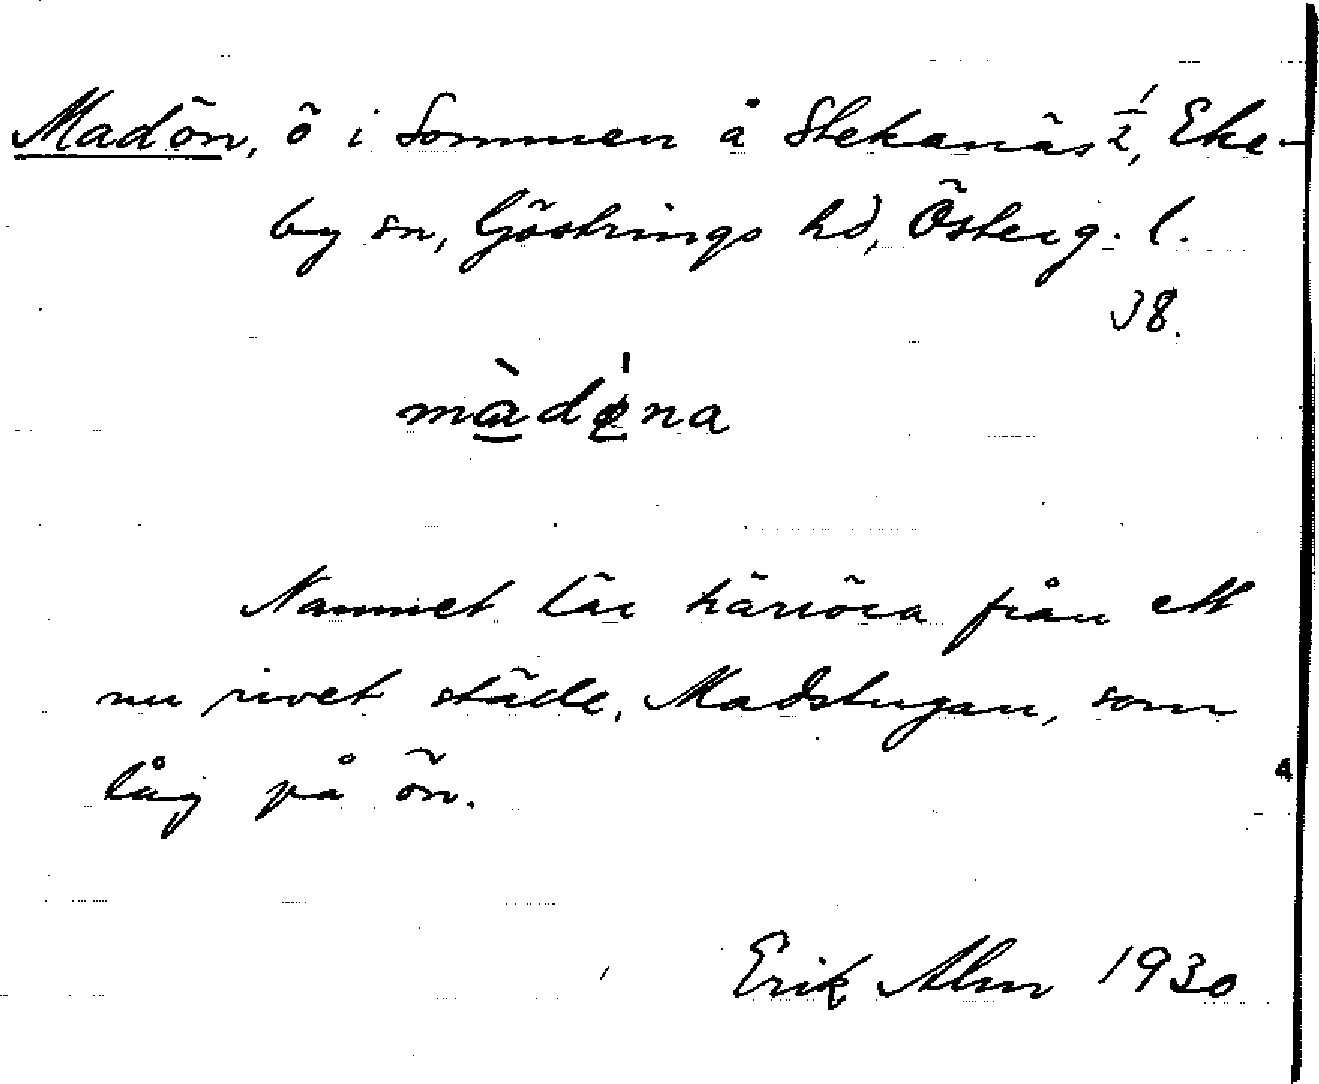 Madön, ö i Sommen å Stekanäs 1/2, Eke-
by sn, Göstrings hd, Österg. l.
38.
màdø̀na
Namnet lär härröra från ett
nu rivet ställe, Madstugan, som
låg på ön.
Erik Alm 1930